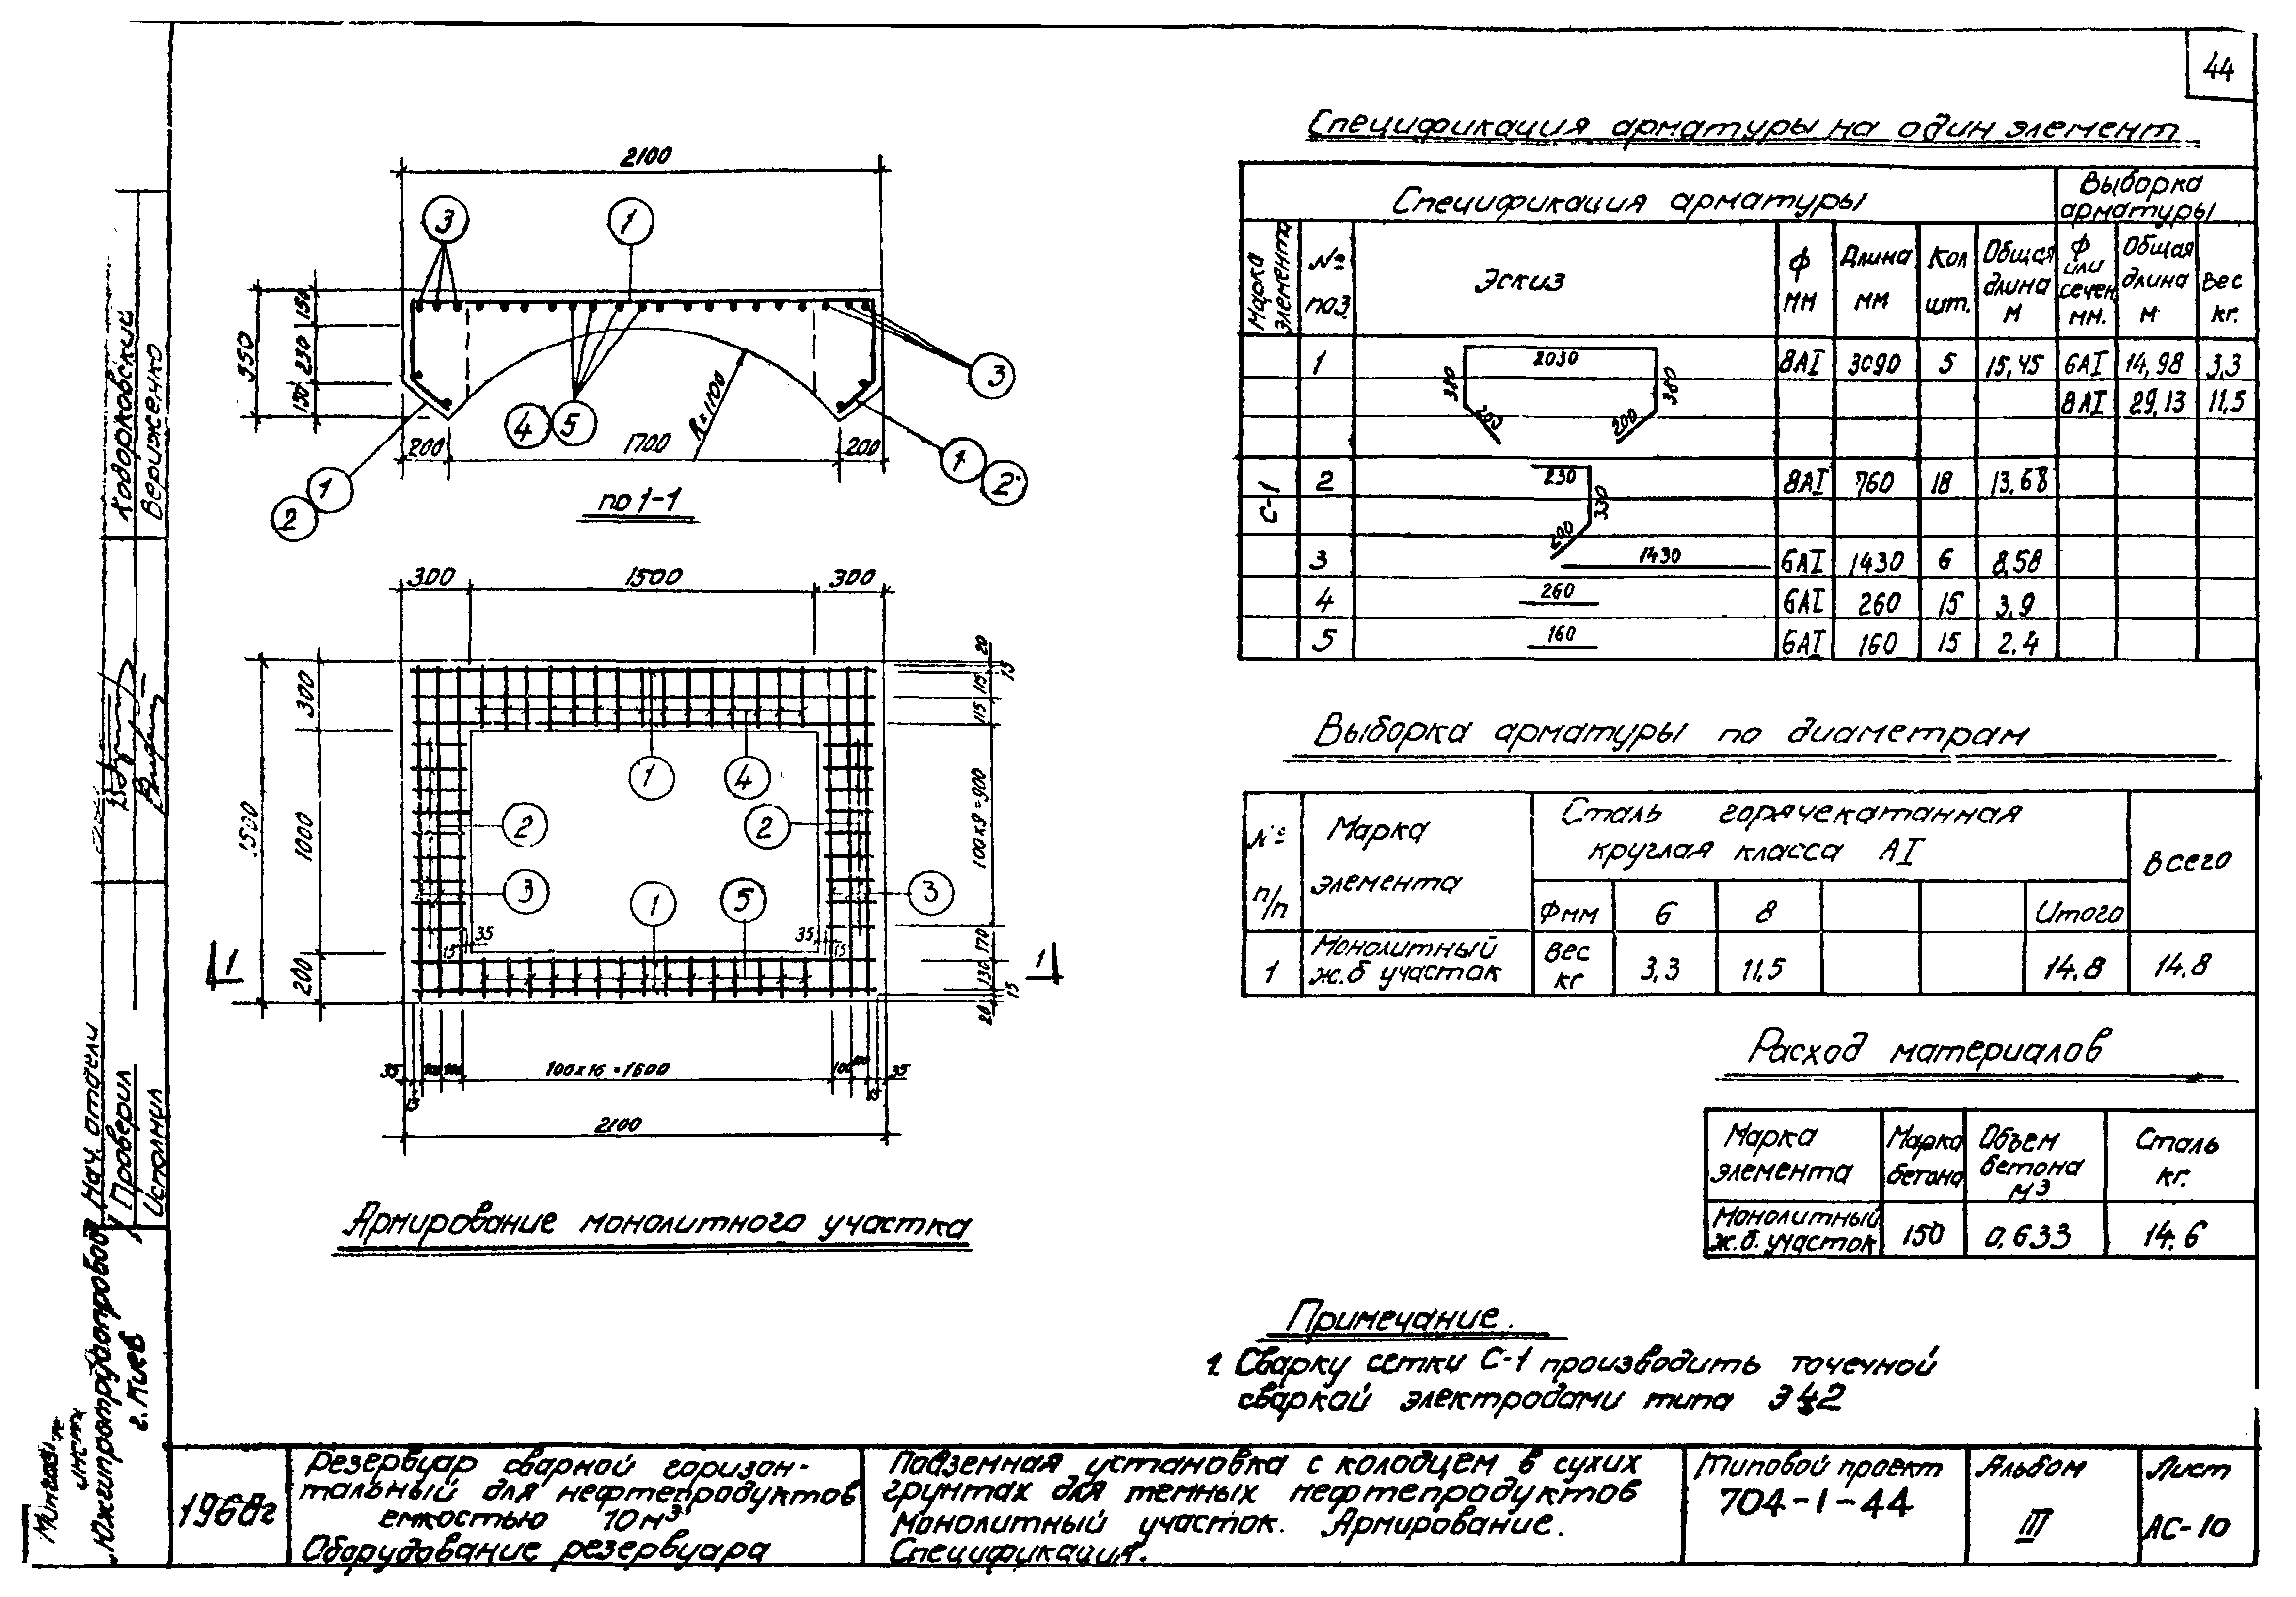 44
Спецификация арматуры на один элемент
Спецификация арматуры
Выборка арматуры
Марка элемента
№ поз.
Эскиз
ф мм
Длина мм
Кол шт.
Общая длина м
ф или сечен мм.
Общая длина м
Вес кг.
1 2030 380 380 200 200 8АI 3090 5 15,45 6АI 14,98 3,3
8АI 29,13 11,5
С-1
2 230 330 200 8АI 760 18 13,68
3 1430 6АI 1430 6 8,58
4 260 6АI 260 15 3,9
5 160 6АI 160 15 2,4
2100
3 1
550
150 230 150
3
4 5
R=1100
200 1700 200
2 1
1 2
по 1-1
300 1500 300
1500
300 1000 200
20
15
115
115
100х9=900
170
130
15
20
1 4
2 2
3 3
1 5
35 35
15 15
1 1
35 100 100 100х16=1600 100 100 35
15 15
2100
Армирование монолитного участка
Выборка арматуры по диаметрам
№ п/п
Марка элемента
Сталь горячекатанная
круглая класса АI
Всего
Фмм 6 8 Итого
1 Монолитный ж.б участок Вес кг 3,3 11,5 14,8 14,8
Расход материалов
Марка элемента
Марка бетона
Объем бетона м3
Сталь кг.
Монолитный ж.б. участок 150 0,633 14,6
Примечание.
1. Сварку сетки С-1 производить точечной
сваркой электродами типа Э42
Ходорковский
Верижечко
Нач. отдела
Проверил
Исполнил
г. Киев
1968г
Резервуар сварной горизон-
тальный для нефтепродуктов
емкостью 10м3
Оборудование резервуара
Подземная установка с колодцем в сухих
грунтах для темных нефтепродуктов
Монолитный участок. Армирование.
Спецификация.
Типовой проект
704-1-44
Альбом
III
Лист
АС-10